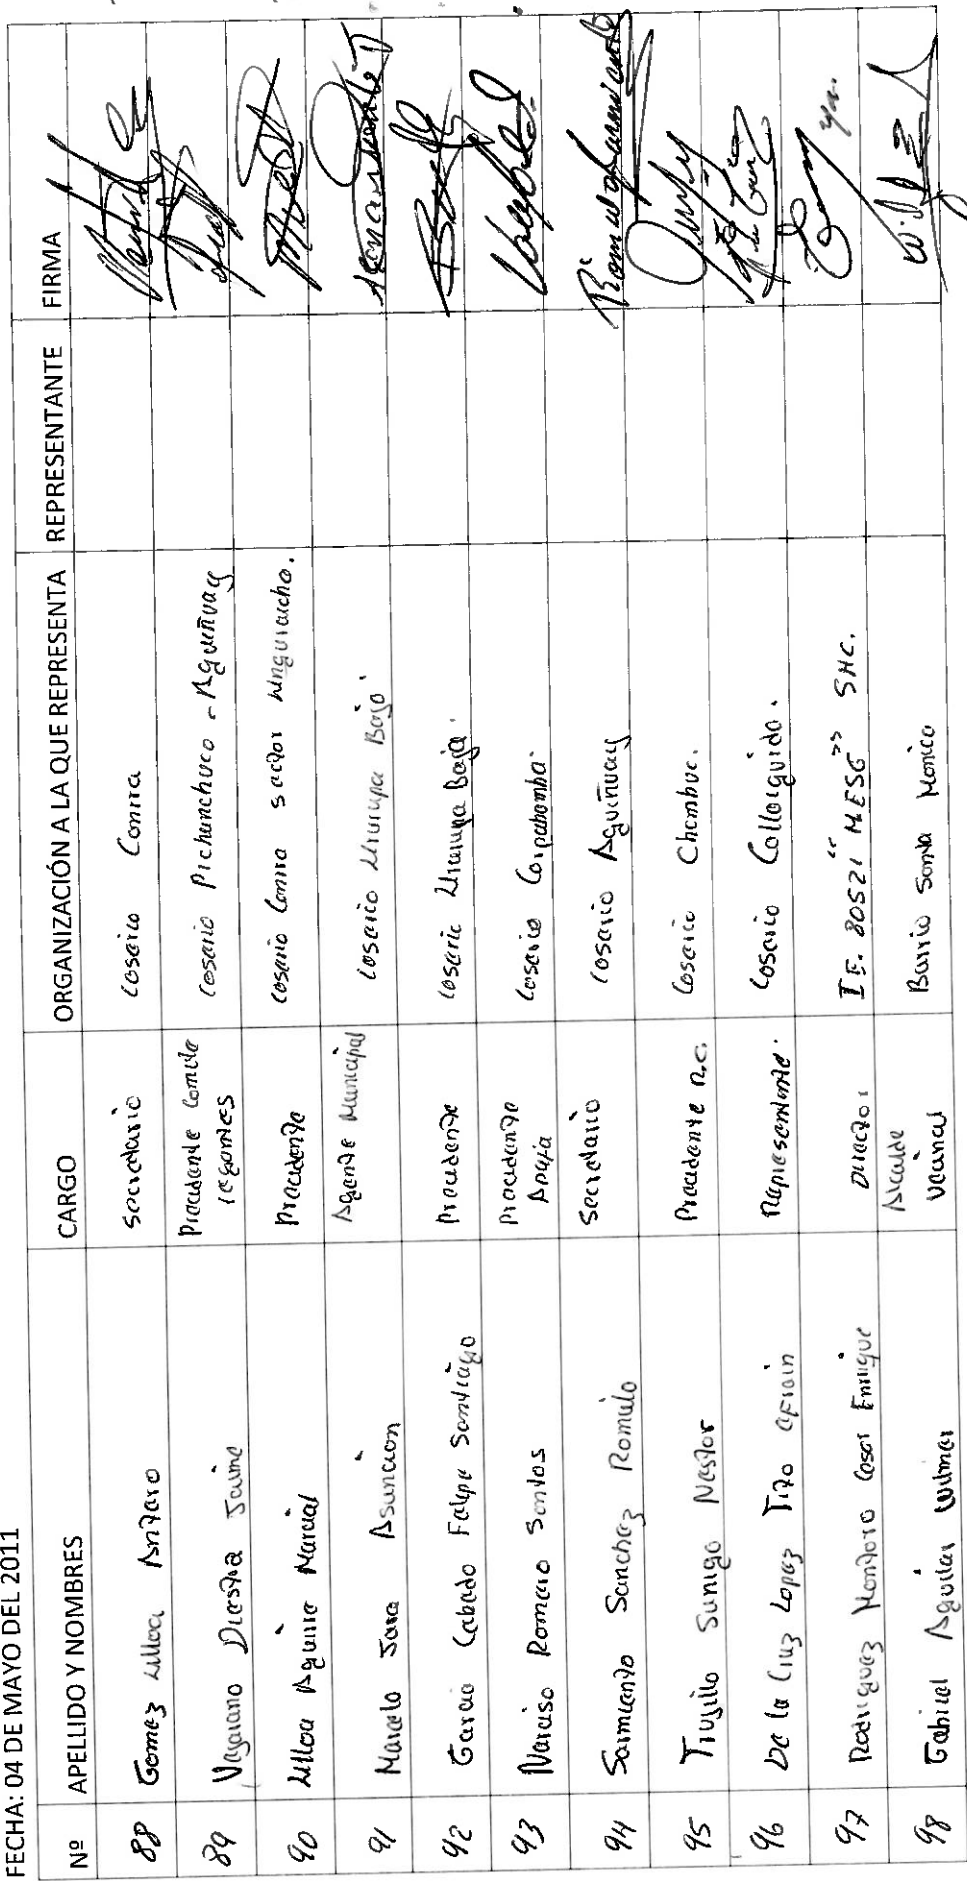 FECHA: 04 DE MAYO DEL 2011
Nº APELLIDO Y NOMBRES CARGO ORGANIZACIÓN A LA QUE REPRESENTA REPRESENTANTE FIRMA
88 Gomez Ulloa Antero Secretario Caserio Conra
89 Vejarano Diestra Jaime Precidente Comite Caserio Pichunchuco - Aguiñuay
regantes
90 Ulloa Aguirre Marcial Precidente Caserio Conra sector Unguraucho.
91 Marcelo Jara Asuncion Agente Municipal Caserio Ururupa Bajo
92 Garcia Cabado Felipe Santiago Precidente Caserio Ururupa Baja.
93 Narciso Romero Santos Precidente Caserio Corpabamba
Apafa
94 Sarmiento Sanchez Romulo Secretario Caserio Aguiñuay Romulo Sarmiento
95 Trujillo Sunigo Nestor Precidente R.C. Caserio Chambuc.
96 De la Cruz Lopez Tito efrain Representante. Caserio Collaiguida.
97 Rodriguez Montoro Cesar Enrique Director I.E. 80521 "MESG" SHC.
98 Gabriel Aguilar Wilmer Alcalde Barrio Santa Monica
vecinal